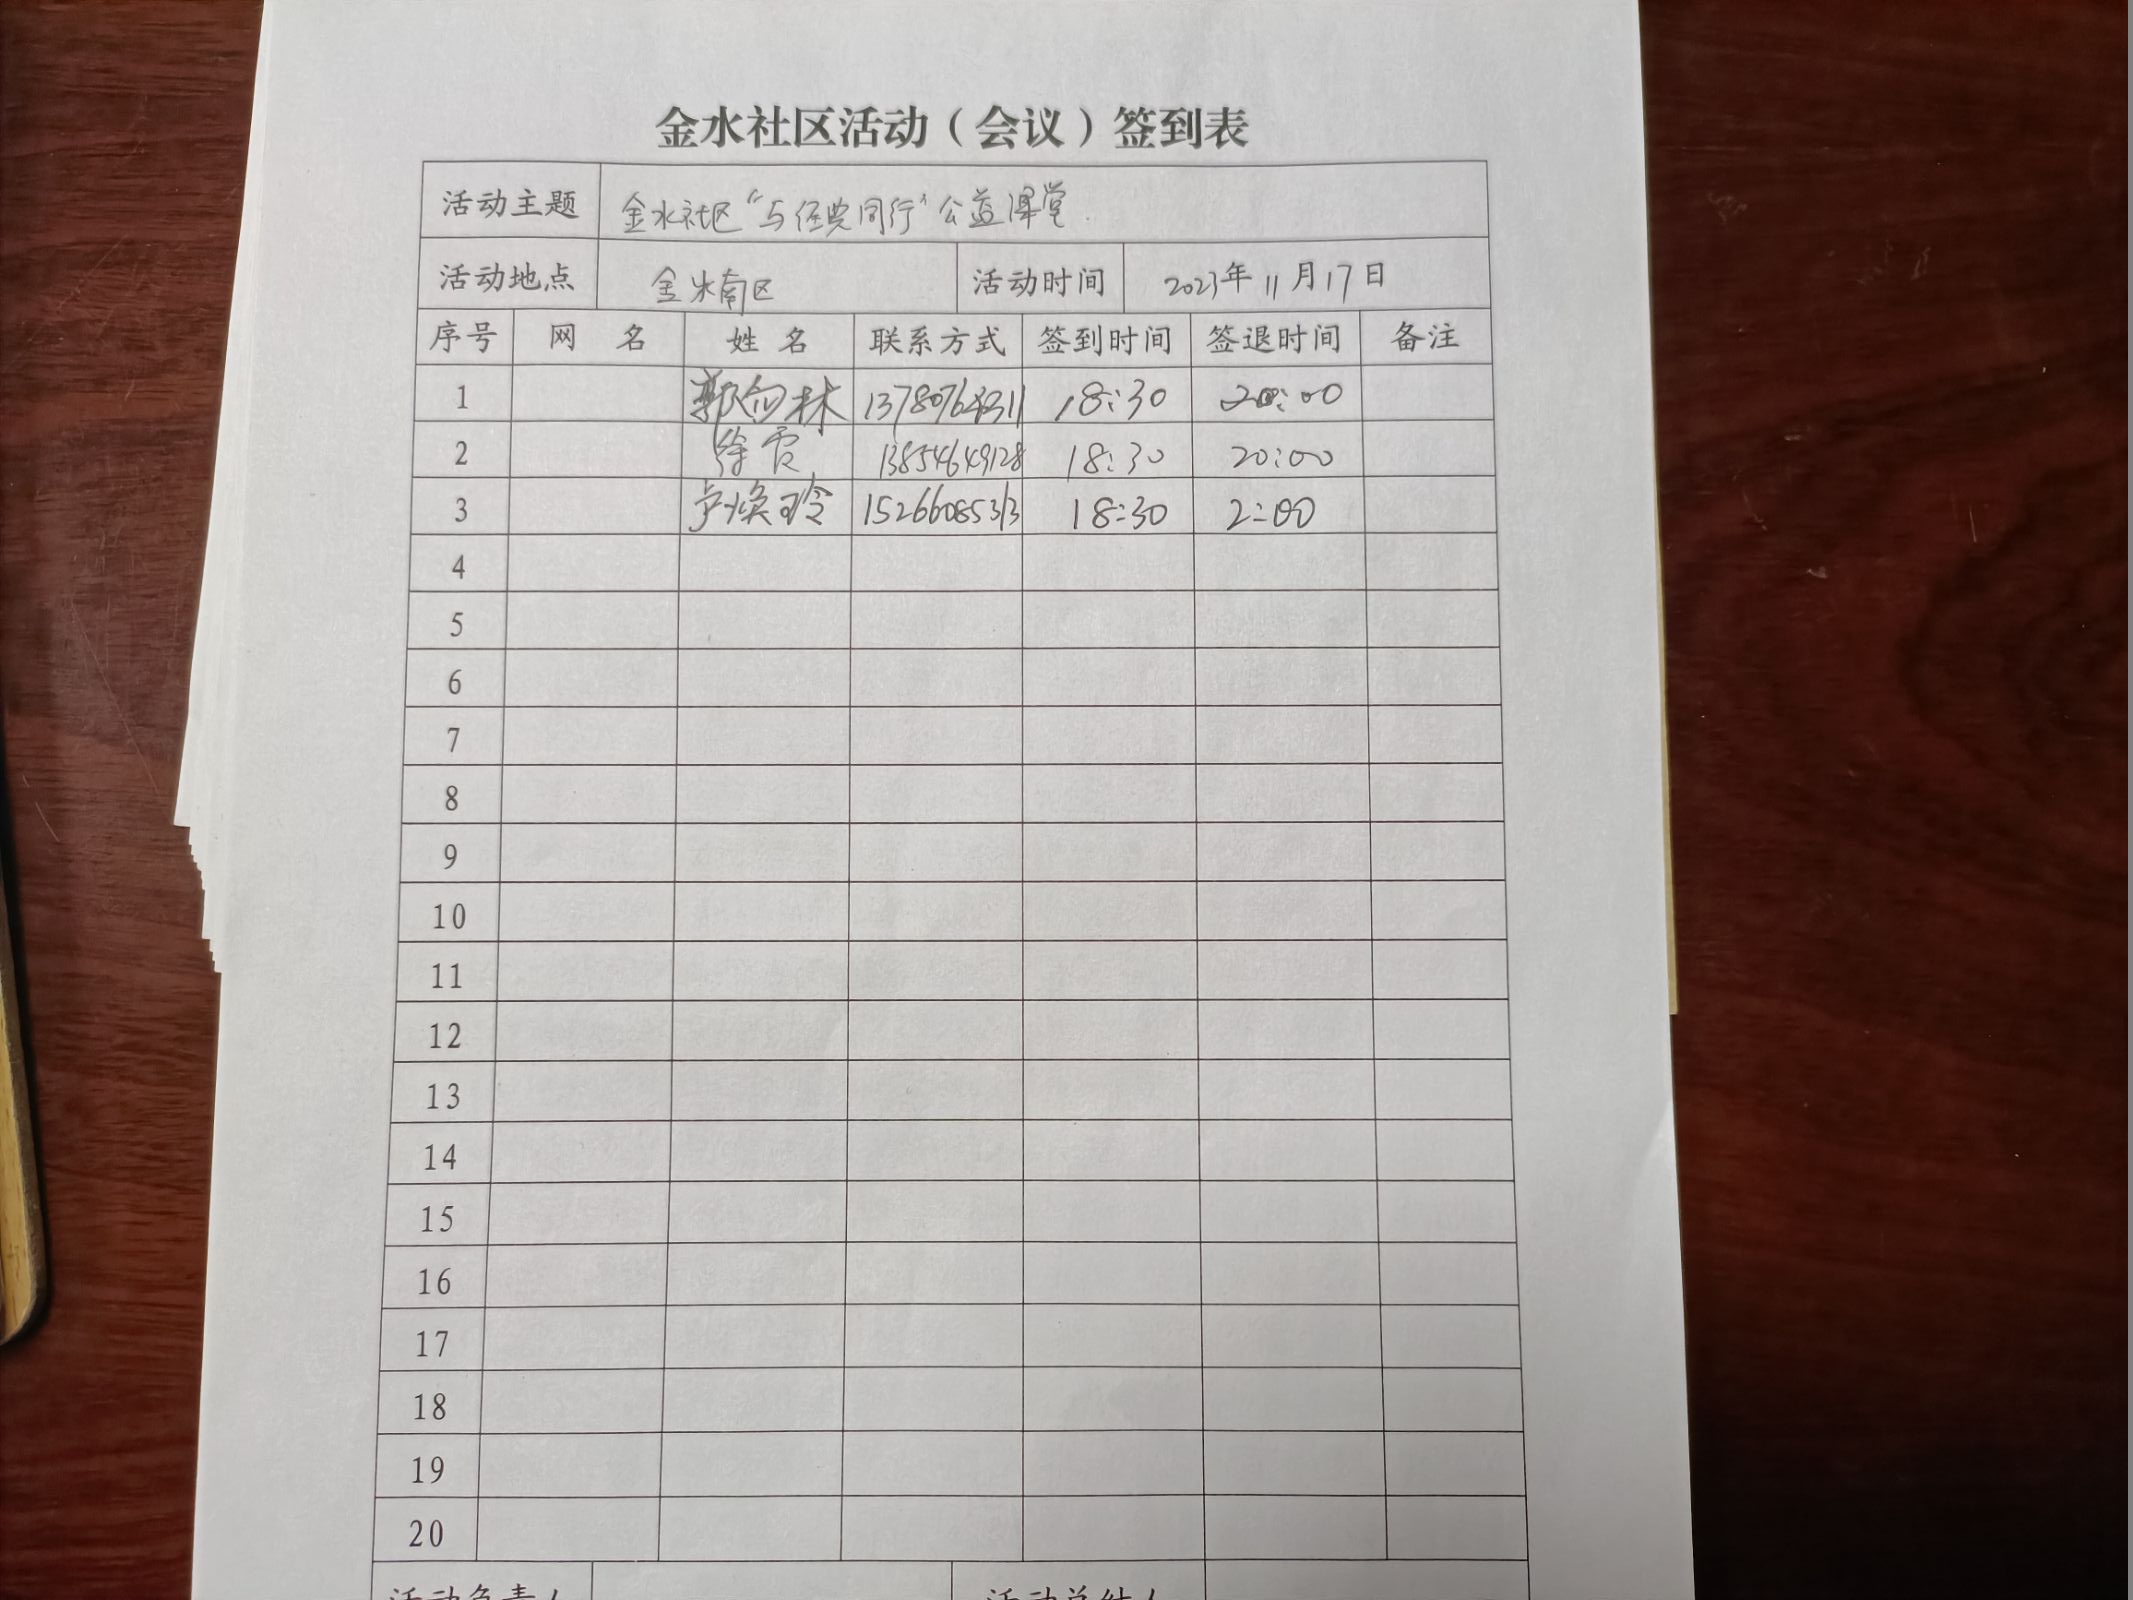 金水社区活动（会议）签到表
活动主题 金水社区“与经典同行”公益课堂
活动地点 金水南区 活动时间 2023年11月17日
序号 网名 姓名 联系方式 签到时间 签退时间 备注
1 郭 林 18:30 20:00
2 徐霞 13854649128 18:30 20:00
3 卢焕玲 15266085313 18:30 2:00
4
5
6
7
8
9
10
11
12
13
14
15
16
17
18
19
20
活动负责人 活动总结人